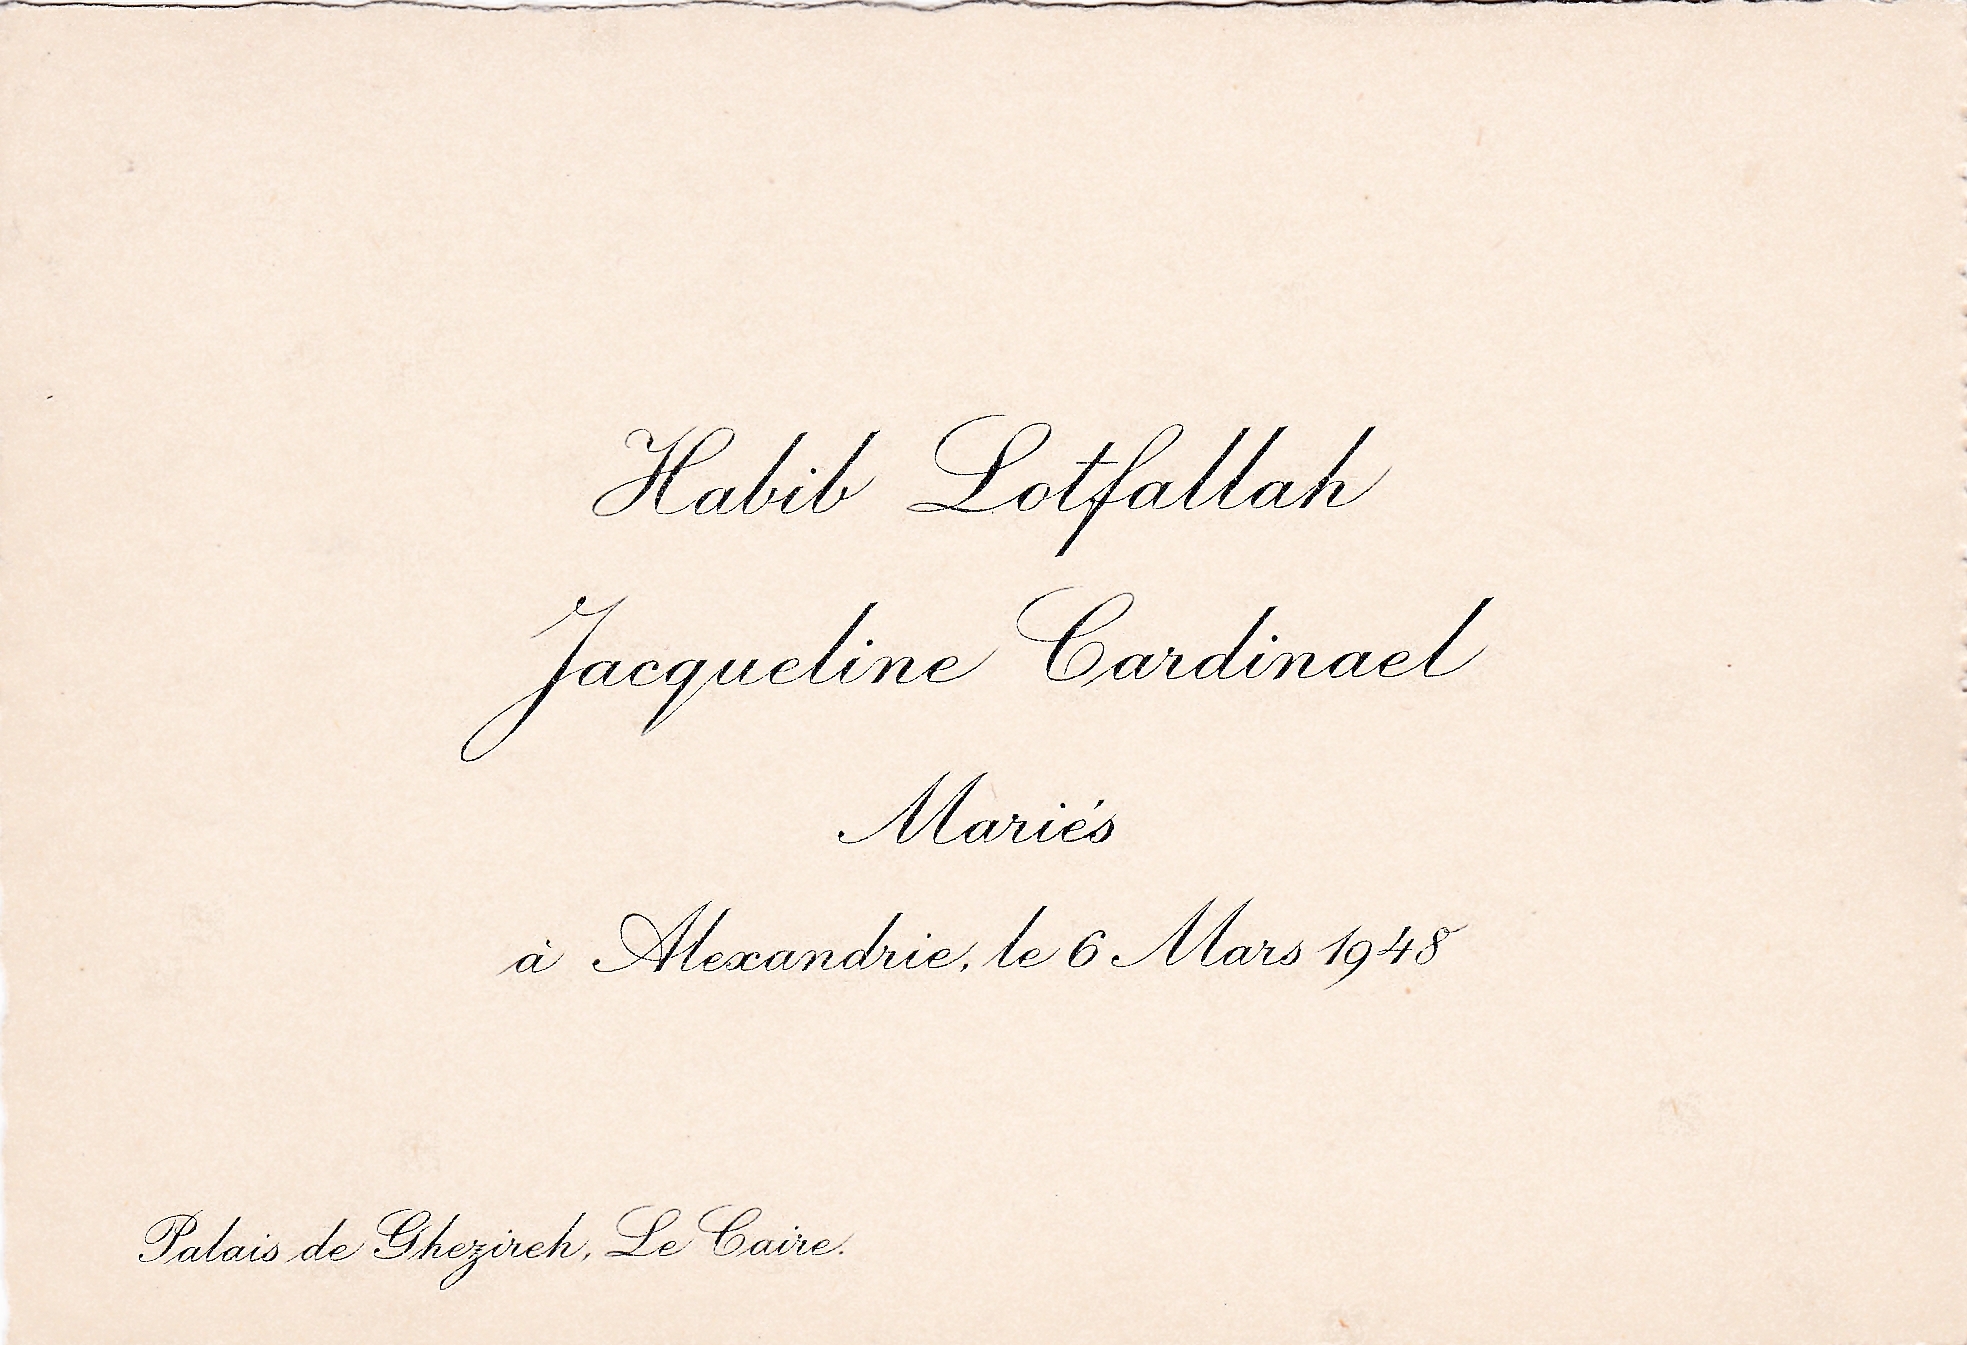 Habib Lotfallah
Jacqueline Cardinael
Mariés
à Alexandrie, le 6 Mars 1948
Palais de Ghezireh, Le Caire.